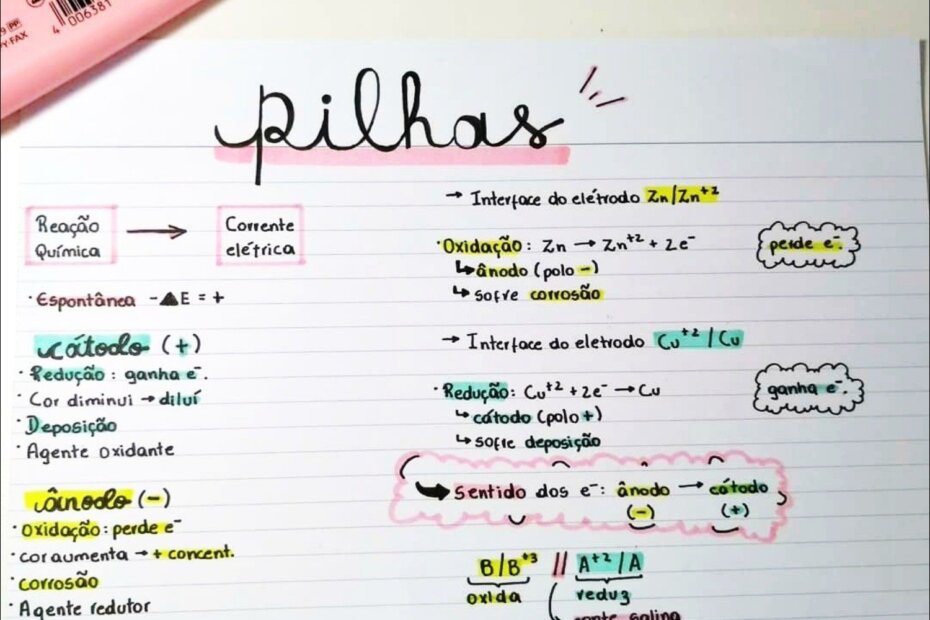 006381
4
pilhas
Reação
Química
Corrente
elétrica
· Espontânea - ▲E = +
cátodo (+)
· Redução : ganha e⁻.
· Cor diminui → diluí
· Deposição
· Agente oxidante
ânodo (-)
· oxidação : perde e⁻
· cor aumenta → + concent.
· corrosão
· Agente redutor
→ Interface do elétrodo Zn/Zn⁺²
· Oxidação : Zn → Zn⁺² + 2e⁻
↳ ânodo (polo -)
↳ sofre corrosão
perde e⁻.
→ Interface do eletrodo Cu⁺² / Cu
· Redução : Cu⁺² + 2e⁻ → Cu
↳ cátodo (polo +)
↳ sofre deposição
ganha e⁻.
Sentido dos e⁻: ânodo → cátodo
(-) (+)
B/B⁺³ // A⁺² / A
oxida reduz
ponte salina